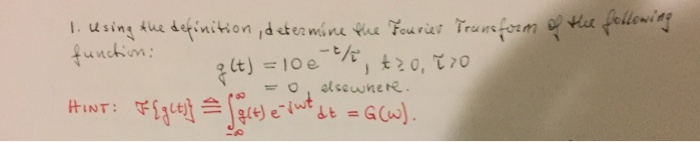 1. Using the definition, determine the Fourier Transform of the following
function:
g(t) = 10 e^{-t/τ}, t ≥ 0, τ > 0
= 0, elsewhere.
HINT: F{g(t)} ≜ ∫_{-∞}^{∞} g(t) e^{-jωt} dt = G(ω).